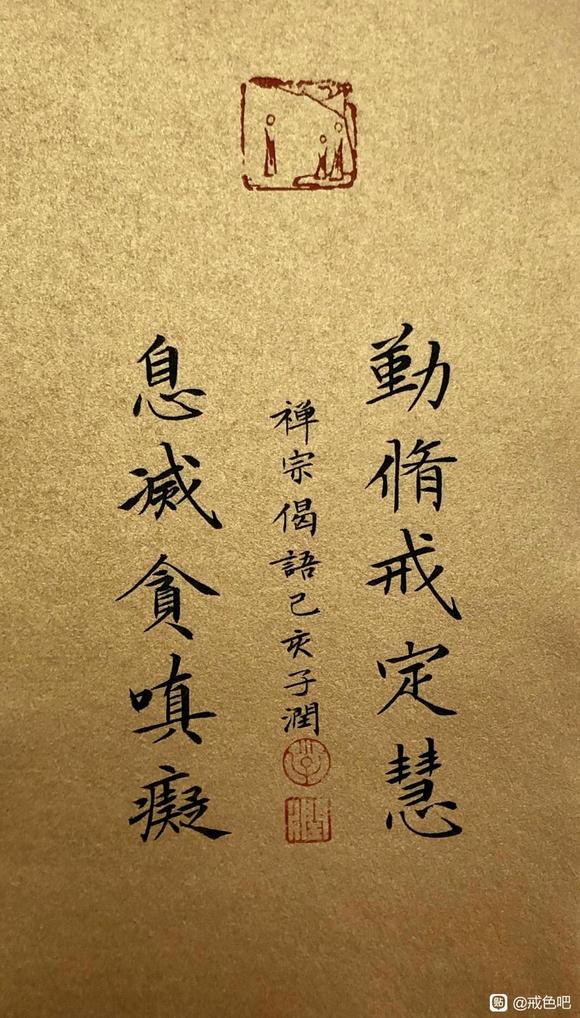 勤脩戒定慧
禅宗偈語己亥子潤
息滅貪嗔癡
@戒色吧